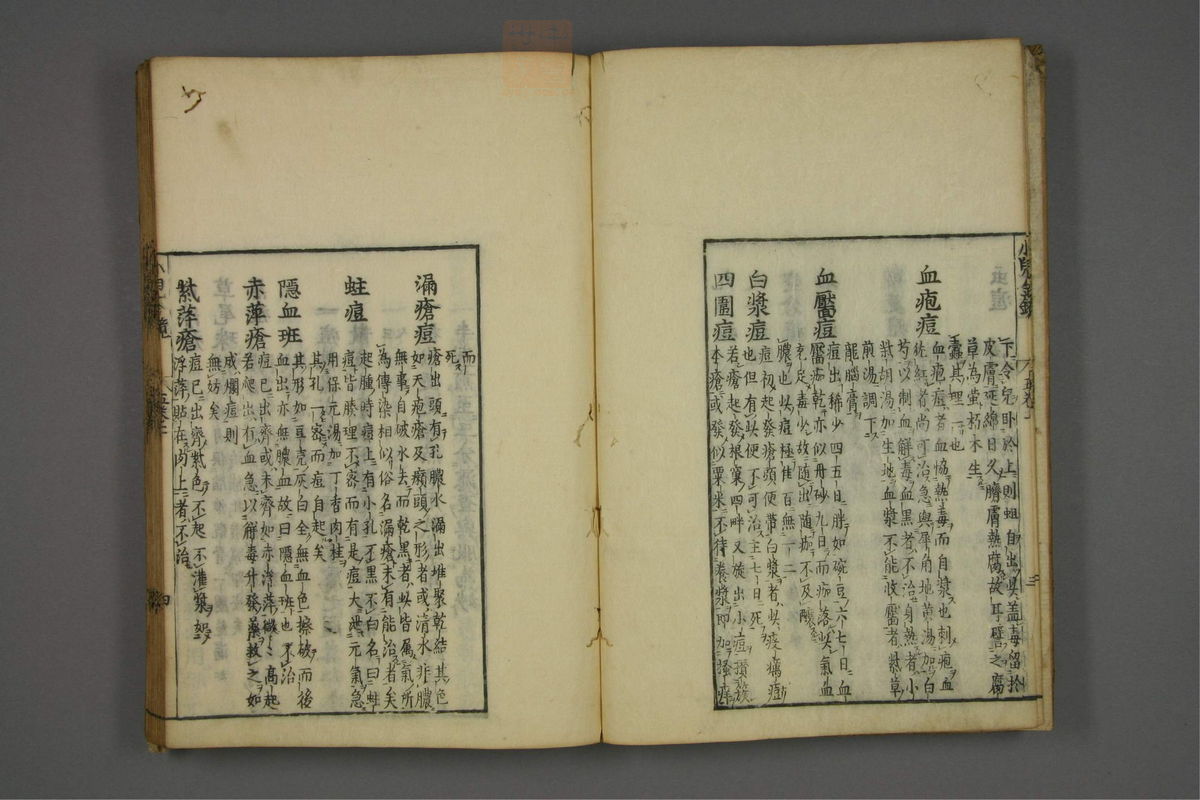 下令兒卧於上則蛆自出此蓋毒留於
皮膚延綿日久膿膚熱腐故耳譬之腐
草為螢朽木生
蠹其理一也
血疱痘
血疱痘者血協熱毒而自漿也刺疱血
紅者尚可治急與犀角地黄湯加白
芍以制血解毒血黒者不治身熱者小
柴胡湯加生地血漿不能收靨者紫草
煎湯調下
龍腦膏
血靨痘
痘出稀少四五日胖如碗豆六七日血
靨痂乾亦似丹砂九日而痂落此氣血
充足毒少故随出随痂不及釀
膿也此痘極佳百無一二
白漿痘
痘初起發瘡頭便帶白漿者此疫癘痘
也但有此便不可治主七日死
四圍痘
若瘡起發根窠四畔又旋出小痘攢簇
本瘡或發似粟米不待養漿即加搔痒
而
死
漏瘡痘
瘡出頭有孔膿水漏出堆聚乾結其色
如天疱瘡及癩頭之形者或清水非膿
無事自破水去而乾黒者此皆属氣所
為傳染相似俗名漏瘡未有能治者矣
蛀痘
起腫時痘上有小孔不黒不白名曰蛀
痘皆腠理不密而有是痘大泄元氣急
用保元湯加丁香肉桂
其孔一密而痘自起矣
隱血班
其形如耳壳灰白全無血色擦破而後
血出亦無膿血故曰隱血班也不治
赤萍瘡
痘已出齊或未齊如赤浮萍微高起
若爬出有血急以解毒升發藥救之如
成爛痘則
無妨矣
紫萍瘡
痘已出齊紫色不起不灌漿如
浮萍貼在肉上者不治